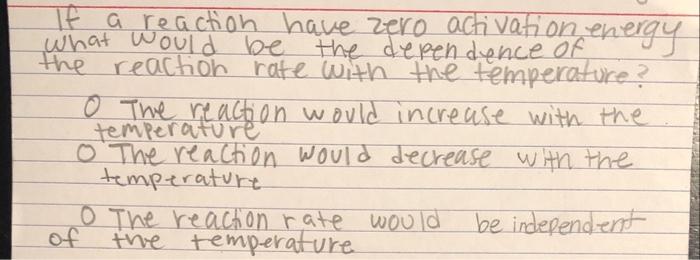 If a reaction have zero activation energy
what would be the dependence of
the reaction rate with the temperature?
O The reaction would increase with the
temperature
O The reaction would decrease with the
temperature
O The reaction rate would be independent
of the temperature